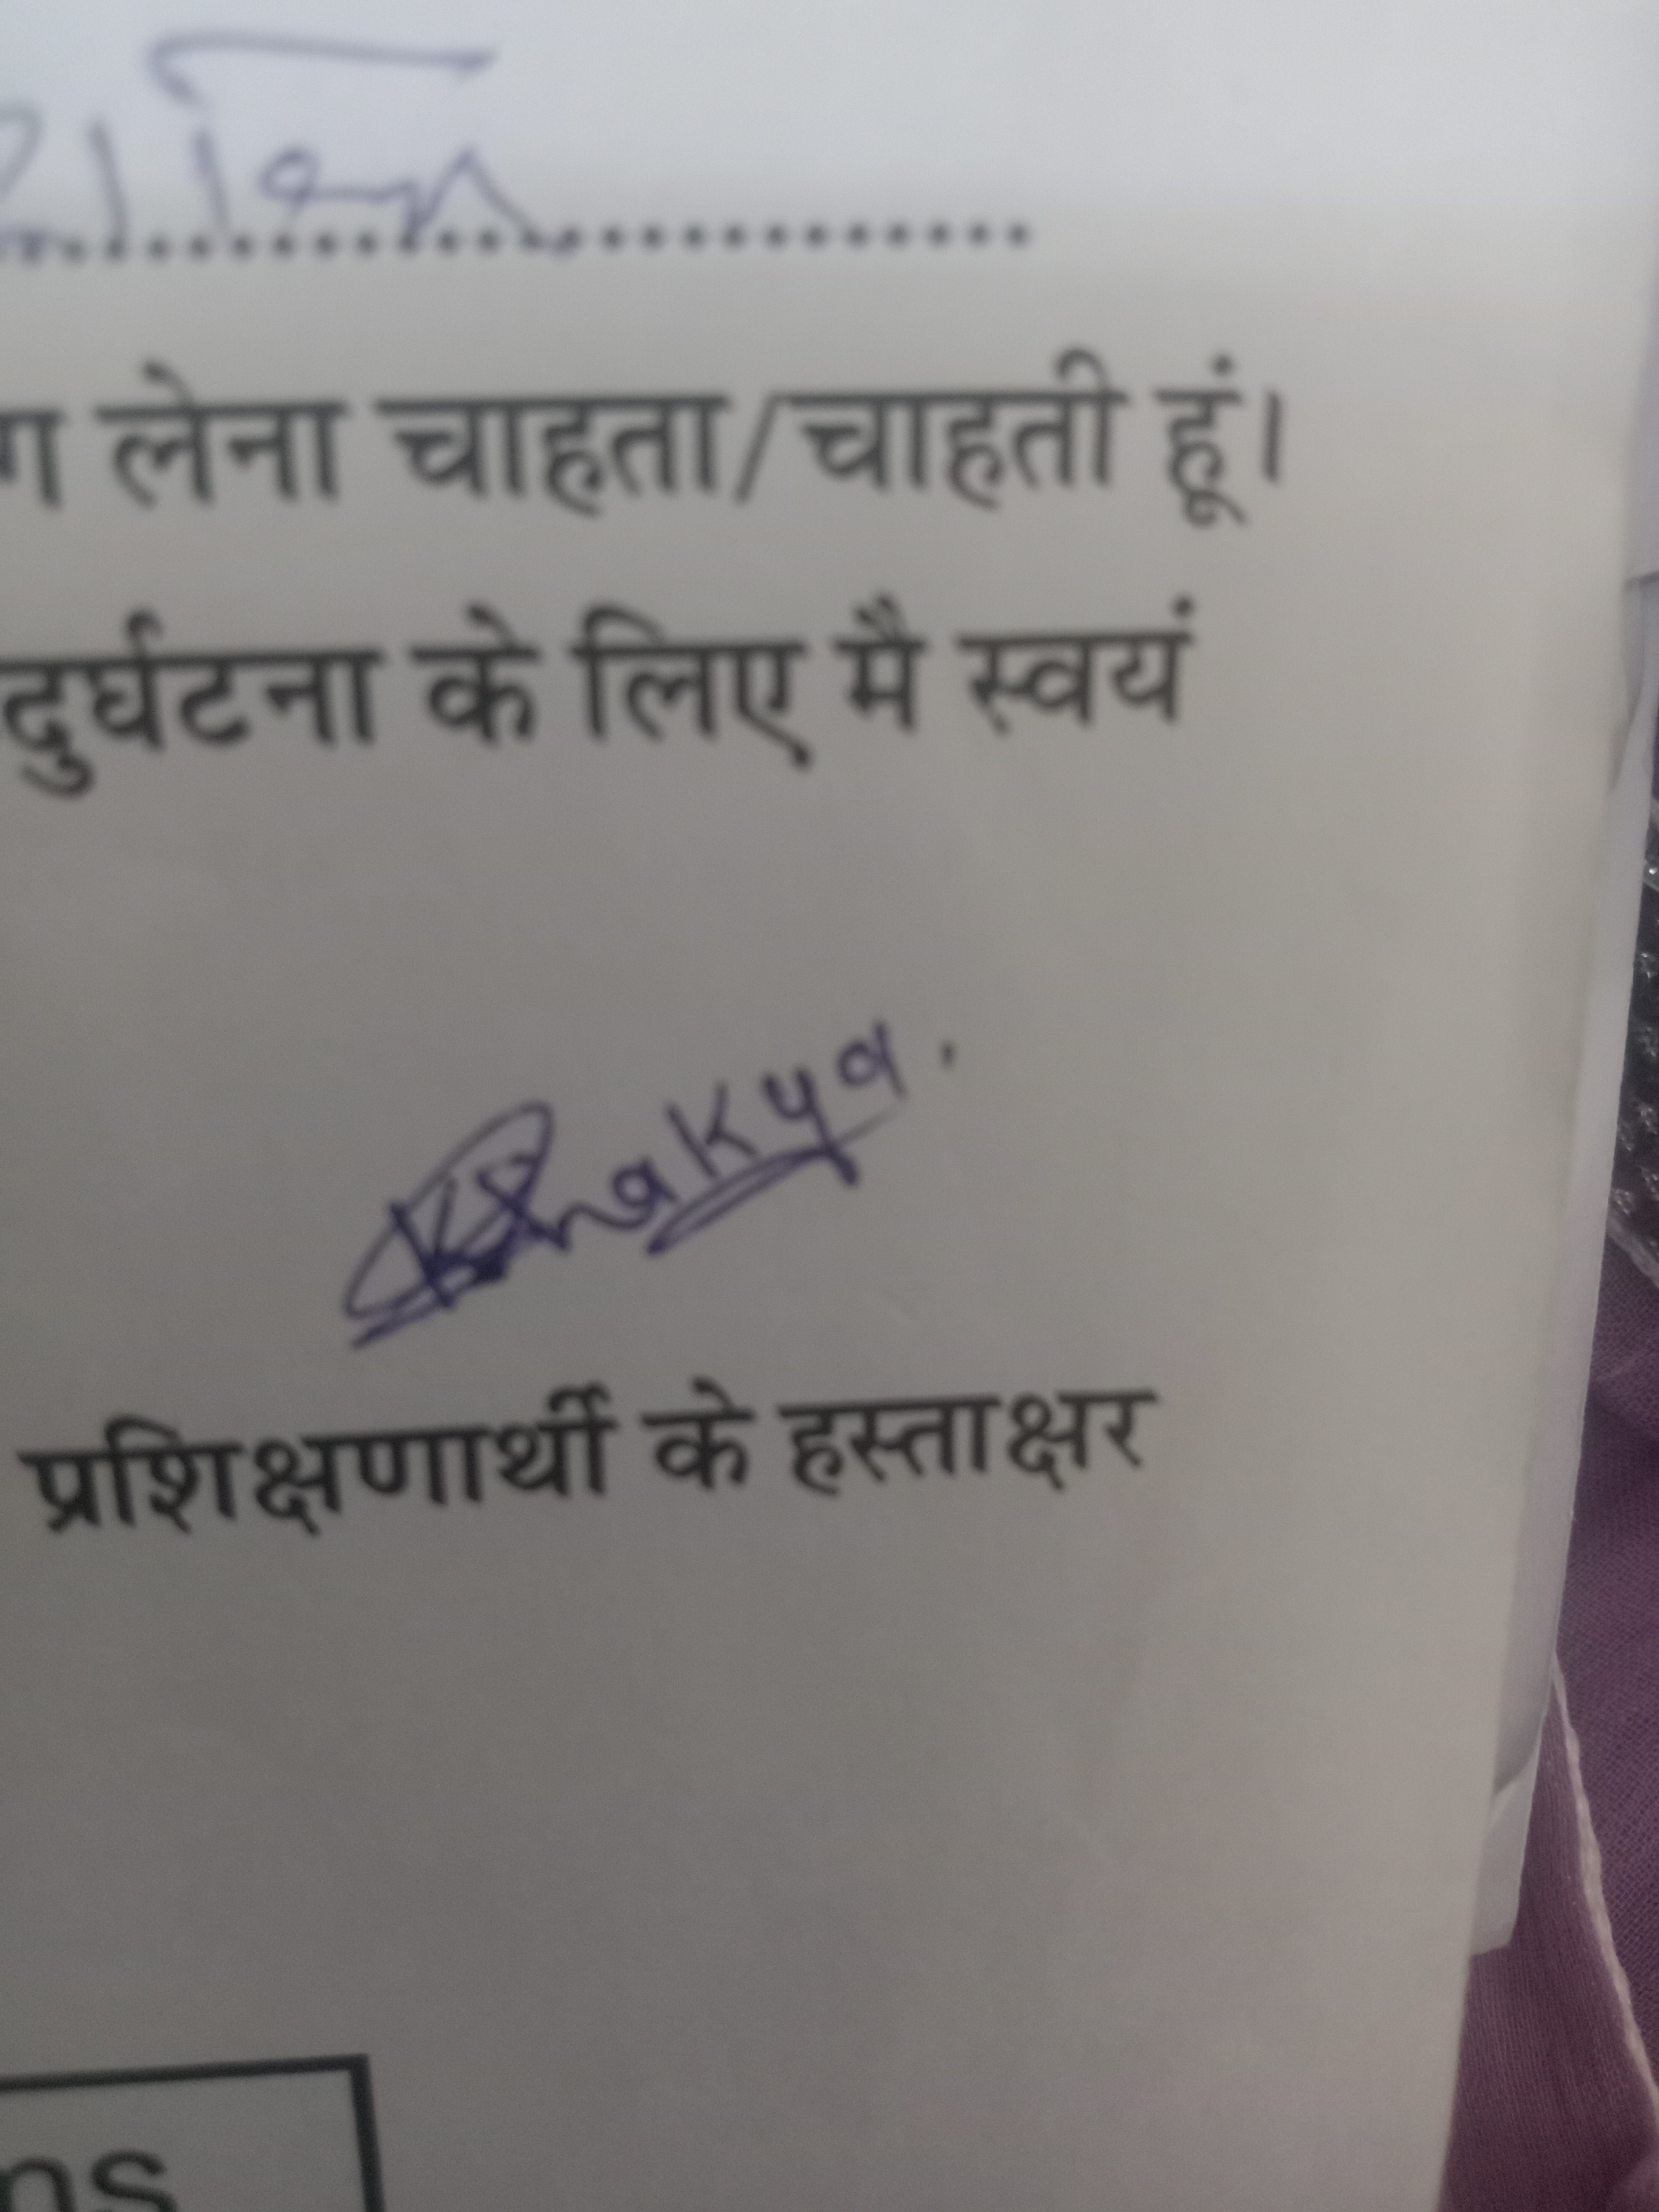 ग लेना चाहता/चाहती हूं।
दुर्घटना के लिए मै स्वयं
Shakya.
प्रशिक्षणार्थी के हस्ताक्षर
ns